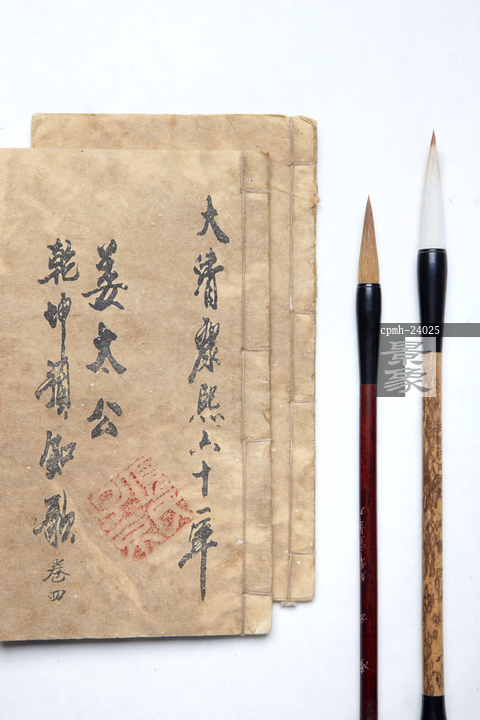 大清康熙六十一年
姜太公
乾坤預知歌
卷四
cpmh-24025
景象